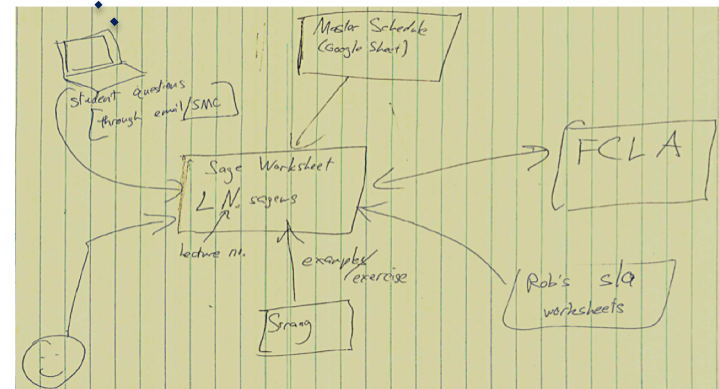 Master Schedule
(Google Sheet)
student questions
through email/SMC
Sage Worksheet
LN.sagews
lecture no.
examples/
exercise
FCLA
Strang
Rob's sla
worksheets